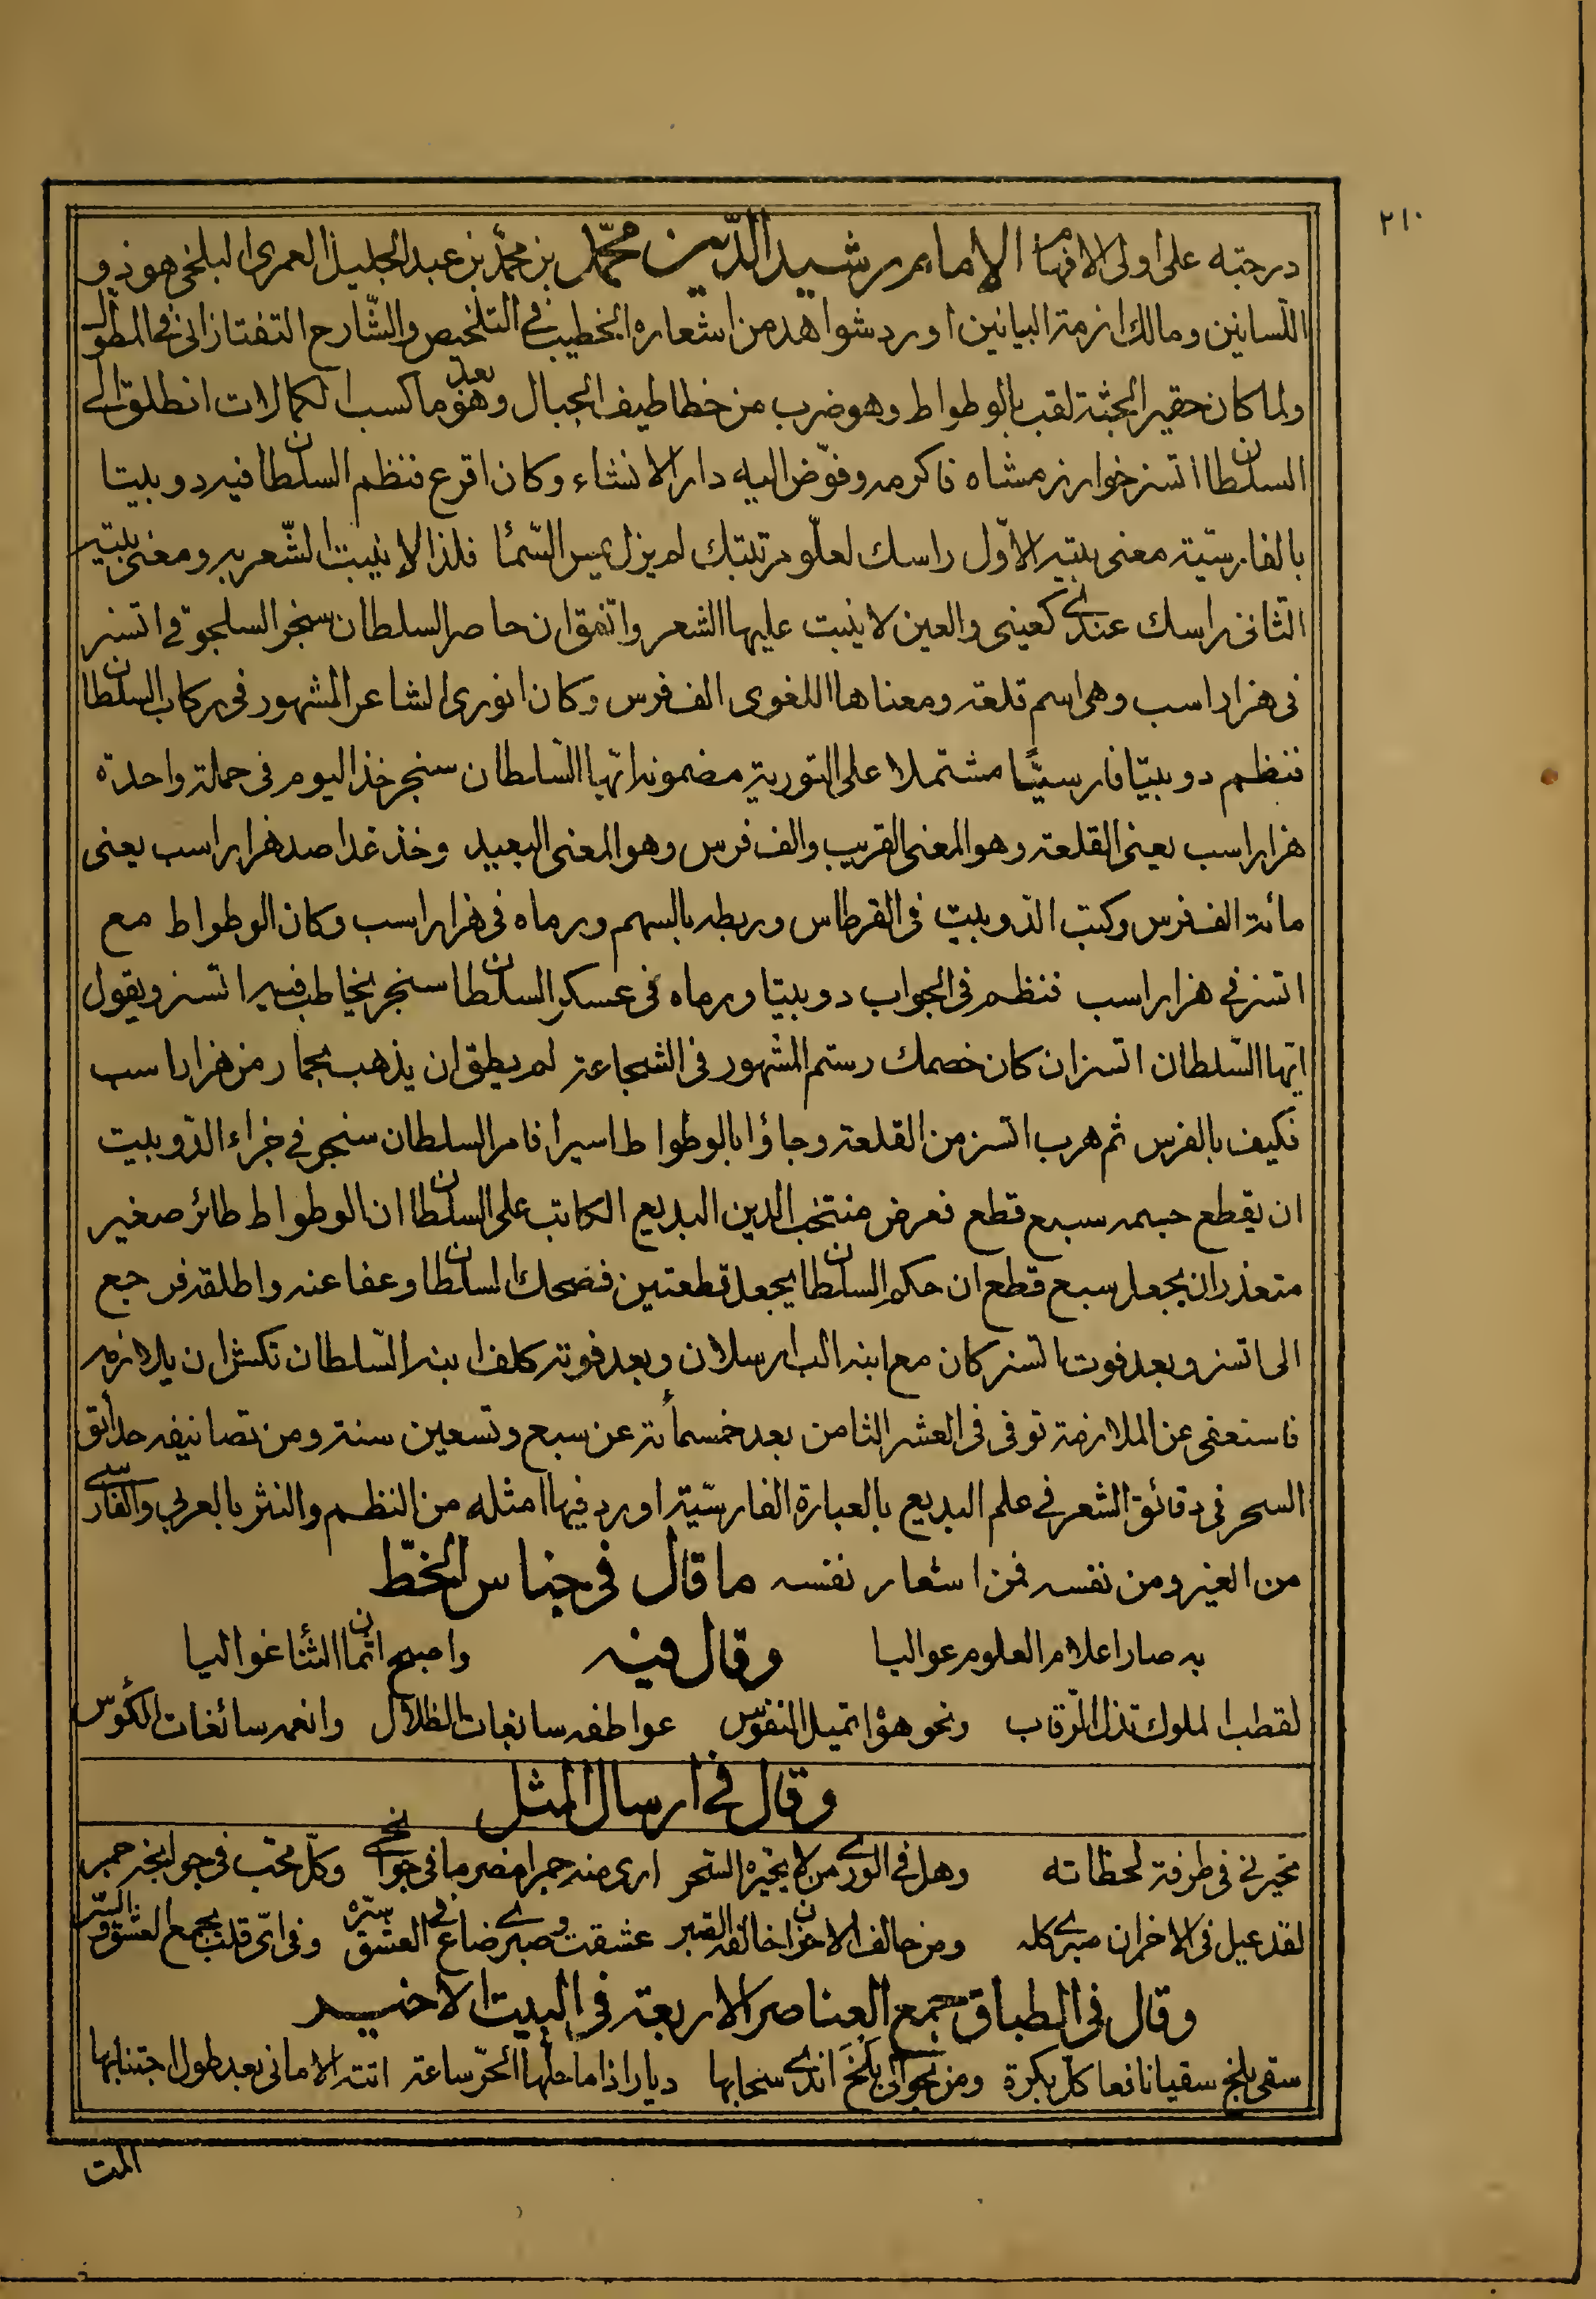 ٢١٠
درجته على اولى الافهام الامام رشيد الدّين محمّد بن محمّد بن عبد الجليل العمرى البلخى هو ذو
اللّسانين ومالك ازمة البيانين اورد شواهد من اشعاره الخطيب في التلخيص والشّارح التفتازانى فى المطوّل
ولما كان حقير الجثة لقب بالوطواط وهو ضرب من خطاطيف الجبال وهو بعد ما كسب الكمالات انطلق الى
السلطان اتسز خوارزمشاه فاكرمه وفوّض اليه دار الانشاء وكان اقرع فنظم السلطان فيه دوبيتا
بالفارسيّة معنى بيته الاوّل راسك لعلّو مرتبتك لم يزل يمس السّماء فلذا لا ينبت الشّعر به ومعنى بيته
الثّانى راسك عندى كعينى والعين لا ينبت عليها الشعر واتّفق ان حاصر السلطان سنجر السلجوقى اتسز
فى هزاراسب وهى اسم قلعة ومعناها اللغوى الف فرس وكان انورى الشاعر المشهور فى ركاب السلطان
فنظم دوبيتا فارسيًّا مشتملا على التورية مضمونه ايّها السّلطان سنجر خذ اليوم فى حملة واحدة
هزاراسب يعنى القلعة وهو المعنى القريب والف فرس وهو المعنى البعيد وخذ غدا صد هزاراسب يعنى
مائة الف فرس وكتب الدّوبيت فى القرطاس وربطه بالسهم ورماه فى هزاراسب وكان الوطواط مع
اتسز فى هزاراسب فنظم فى الجواب دوبيتا ورماه فى عسكر السلطان سنجر يخاطب فيه اتسز ويقول
ايّها السّلطان اتسز ان كان خصمك رستم المشهور فى الشجاعة لم يطق ان يذهب بحمار من هزاراسب
فكيف بالفرس ثم هرب اتسز من القلعة وجاؤا بالوطواط اسيرا فامر السلطان سنجر في جزاء الدّوبيت
ان يقطع جسمه سبع قطع فعرض منتخب الدين البديع الكاتب على السلطان ان الوطواط طائر صغير
متعذر ان يجعل سبع قطع ان حكم السلطان يجعل قطعتين فضحك السلطان وعفا عنه واطلقه فرجع
الى اتسز وبعد فوت اتسز كان مع ابنه الب ارسلان وبعد فوته كلف ابنه السّلطان تكش ان يلازمه
فاستعفى عن الملازمة توفى فى العشر الثامن بعد خمسمائة عن سبع وتسعين سنة ومن تصانيفه حدائق
السحر فى دقائق الشعر في علم البديع بالعبارة الفارسيّة اورد فيها امثله من النظم والنثر بالعربى والفارسى
من الغير ومن نفسه فمن اشعار نفسه ما قال فى جناس الخطّ
به صار اعلام العلوم عواليا واصبح اثمان الثناء غواليا وقال فيه
لقطب الملوك تذل الرّقاب ونحو هواه تميل النفوس عواطفه سابغات الظلال وانعمه سائغات الكؤس
وقال في ارسال المثل
تحيرنى فى طرفة لحظاته وهل في الورى من لا يحيّره السّحر ارى منه جمرا مضرما فى جوانحى وكلّ محب فى جوانحه جمر
لقد عيل فى الاحزان صبرى كله ومن حالف الاحزان خالفه الصبر عشقت وصبرى ضاع فى العشق ستره وفى اىّ قلب يجمع العشق والستر
وقال فى الطباق جمع العناصر الاربعة فى البيت الاخير
سقى بلخ سقيا نافعا كل بكرة ومن نحوانى بلخ اندى سحابها ديار اذا ما حلها الحرّ ساعة اتته الامانى بعد طول اجتنابها
المت